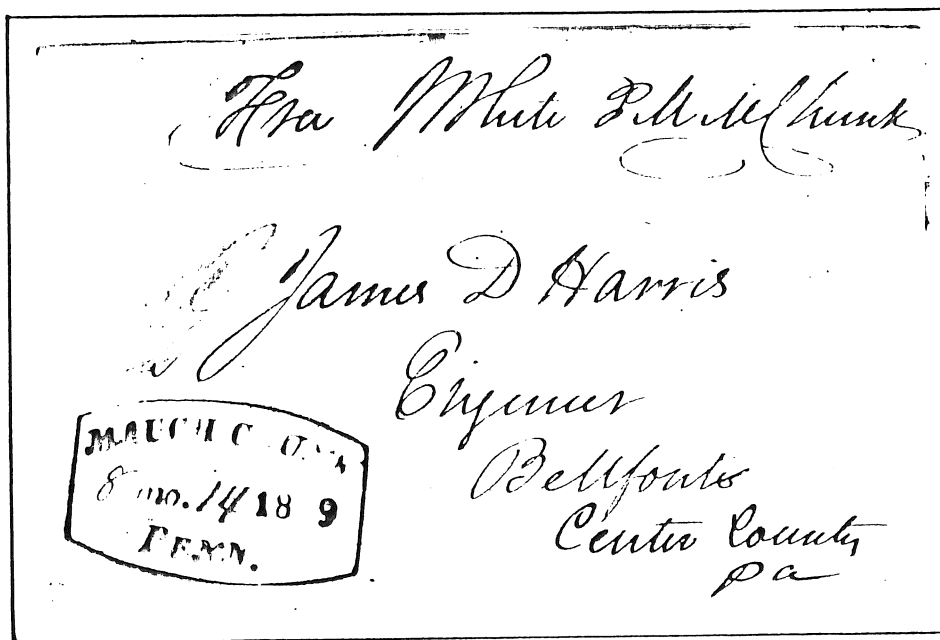 Free White P.M. M Chunk
James D Harris
Engineer
Bellfonte
Center County
Pa
MAUCH C UNK
8 mo. 14 18 9
PENN.